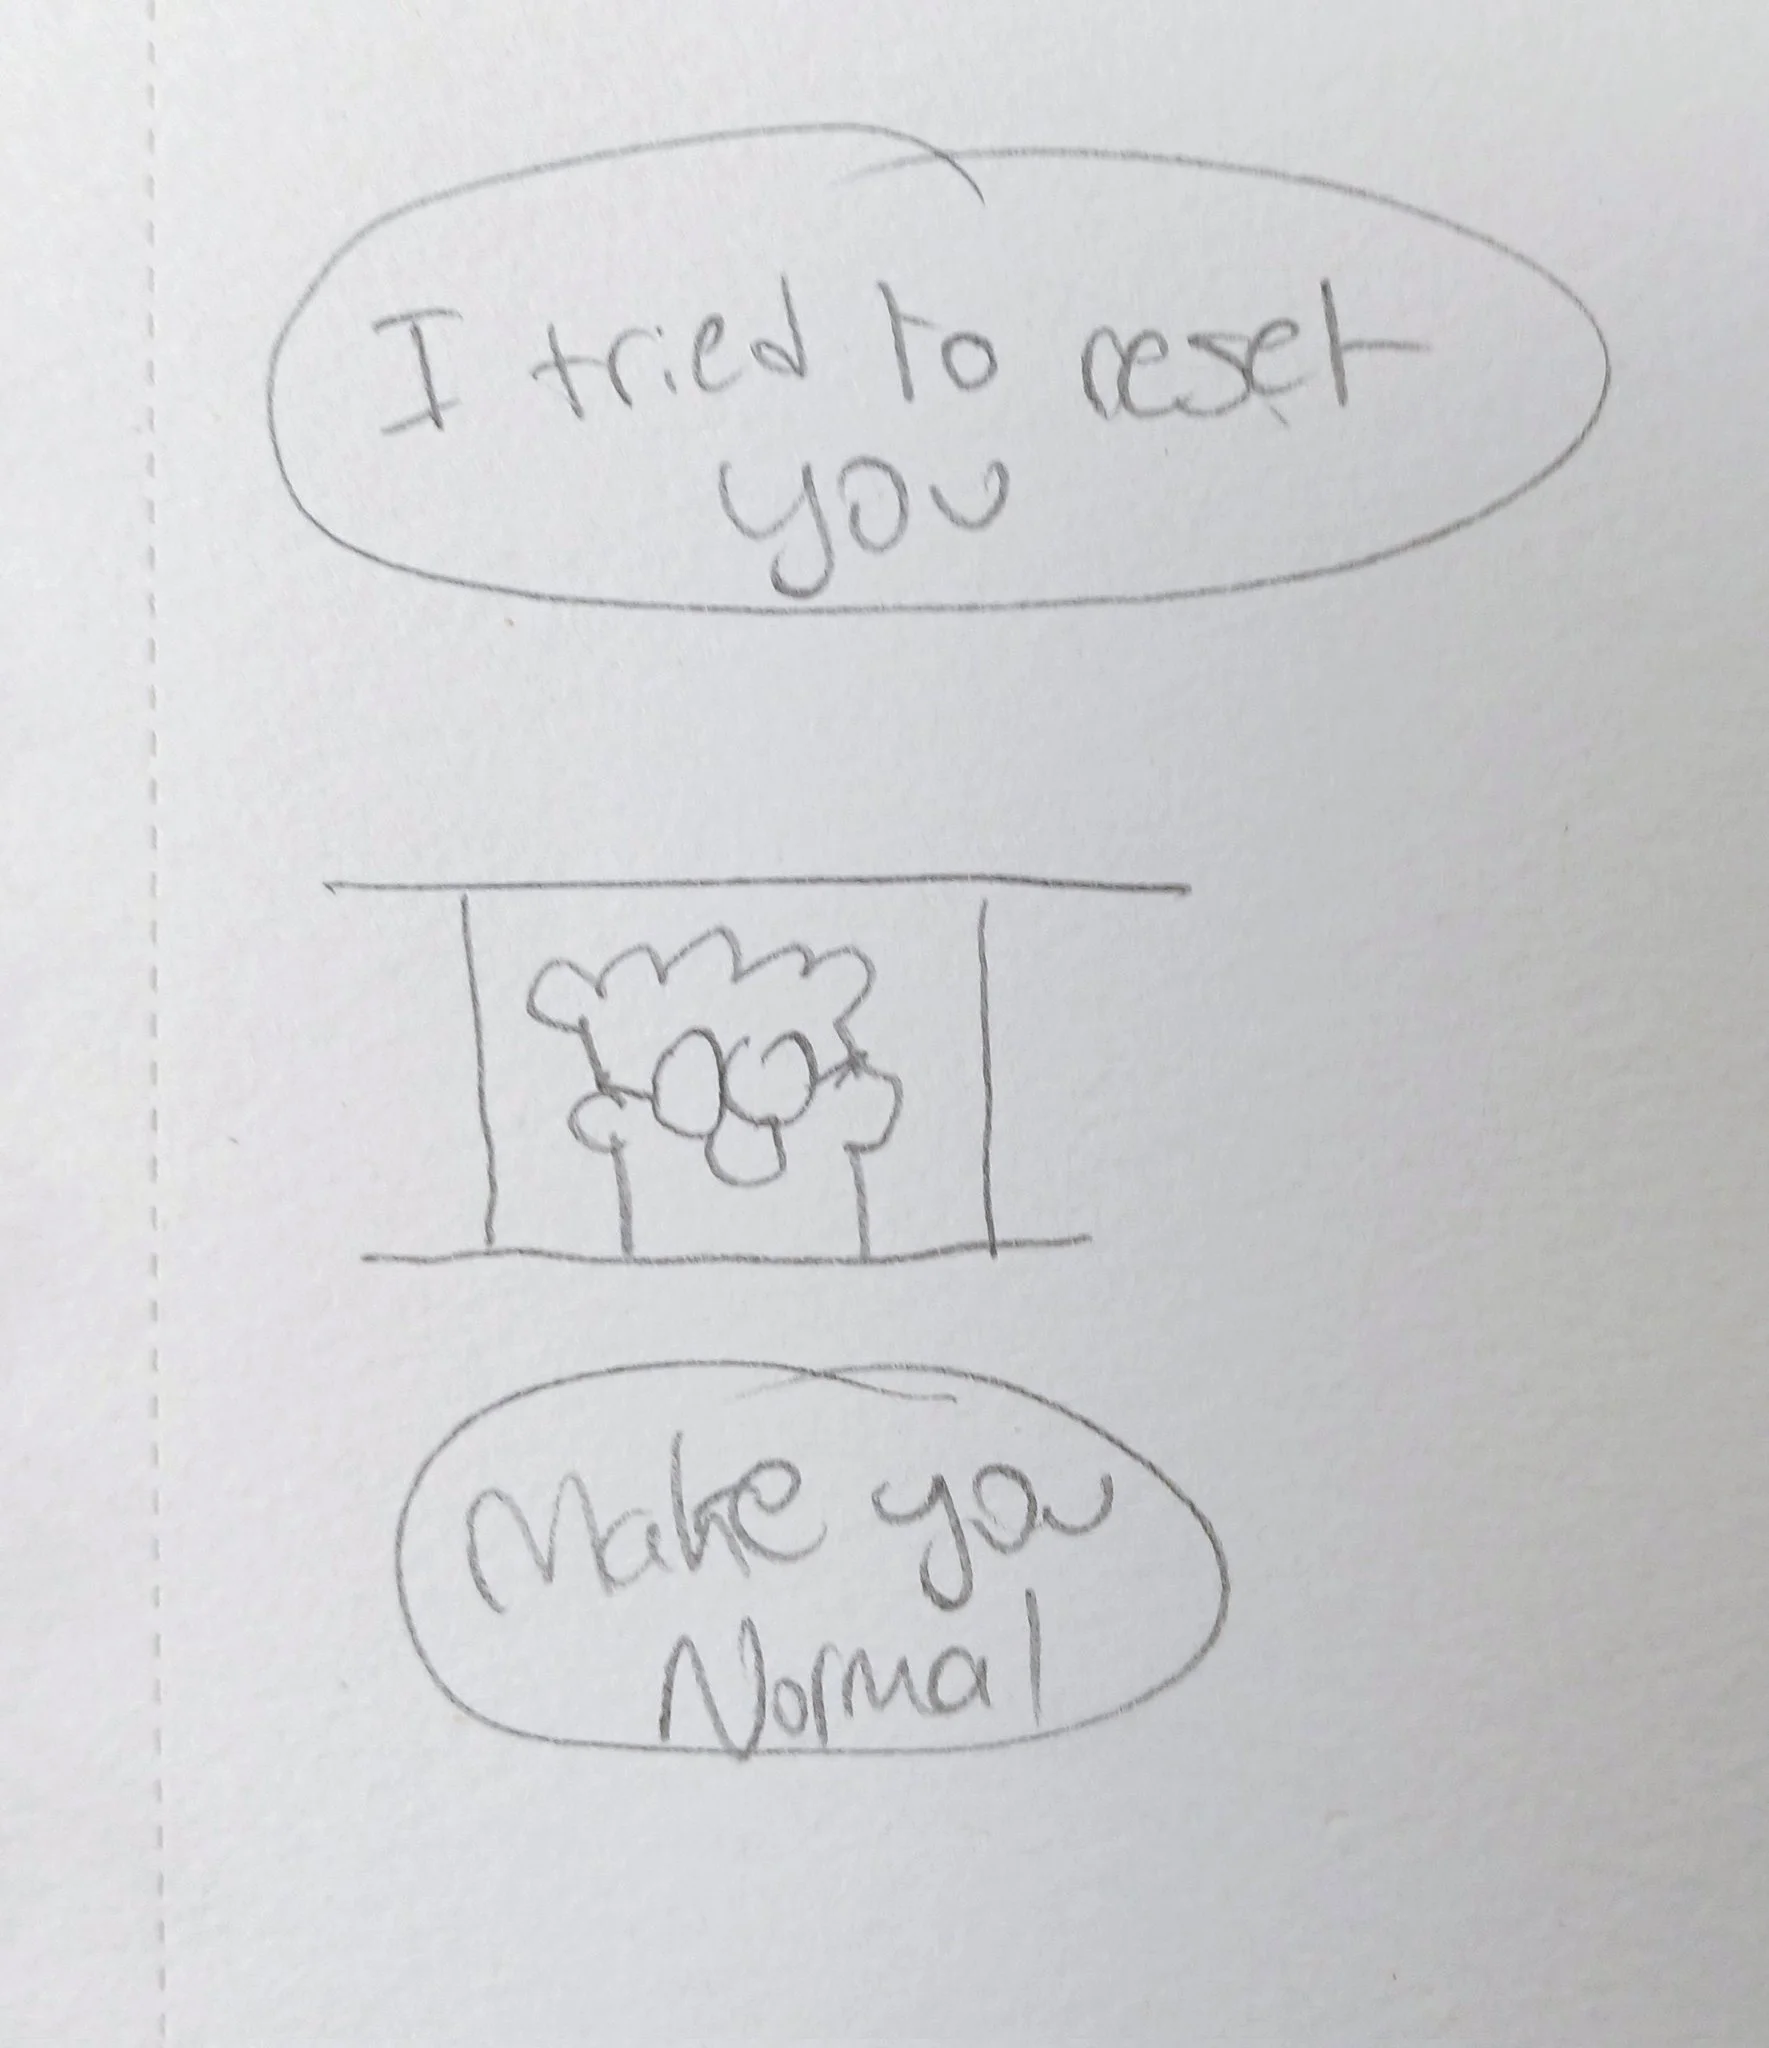 I tried to reset
you
Make you
Normal